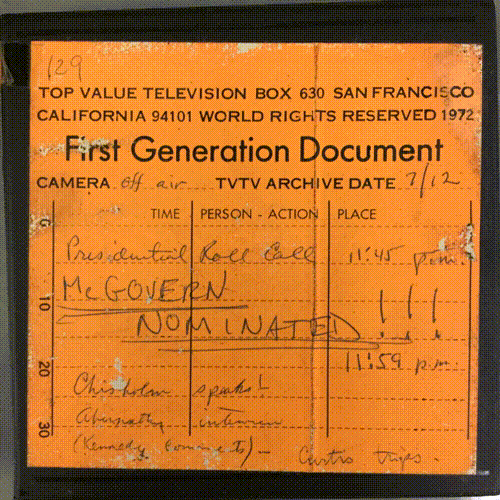 129
TOP VALUE TELEVISION BOX 630 SAN FRANCISCO
CALIFORNIA 94101 WORLD RIGHTS RESERVED 1972
First Generation Document
CAMERA off air TVTV ARCHIVE DATE 7/12
TIME PERSON - ACTION PLACE
0
Presidential Roll Call 11:45 p.m.
10 McGOVERN
NOMINATED !!!
11:59 p.m.
20
Chisholm speaks!
Abernathy interview
30 (Kennedy comments) —